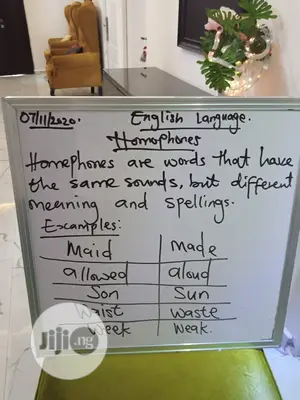 07/11/2020. English Language.
Homophones
Homophones are words that have
the same sounds, but different
meaning and spellings.
Examples:
Maid Made
allowed aloud
Son Sun
Waist waste
Week Weak.
Jiji.ng